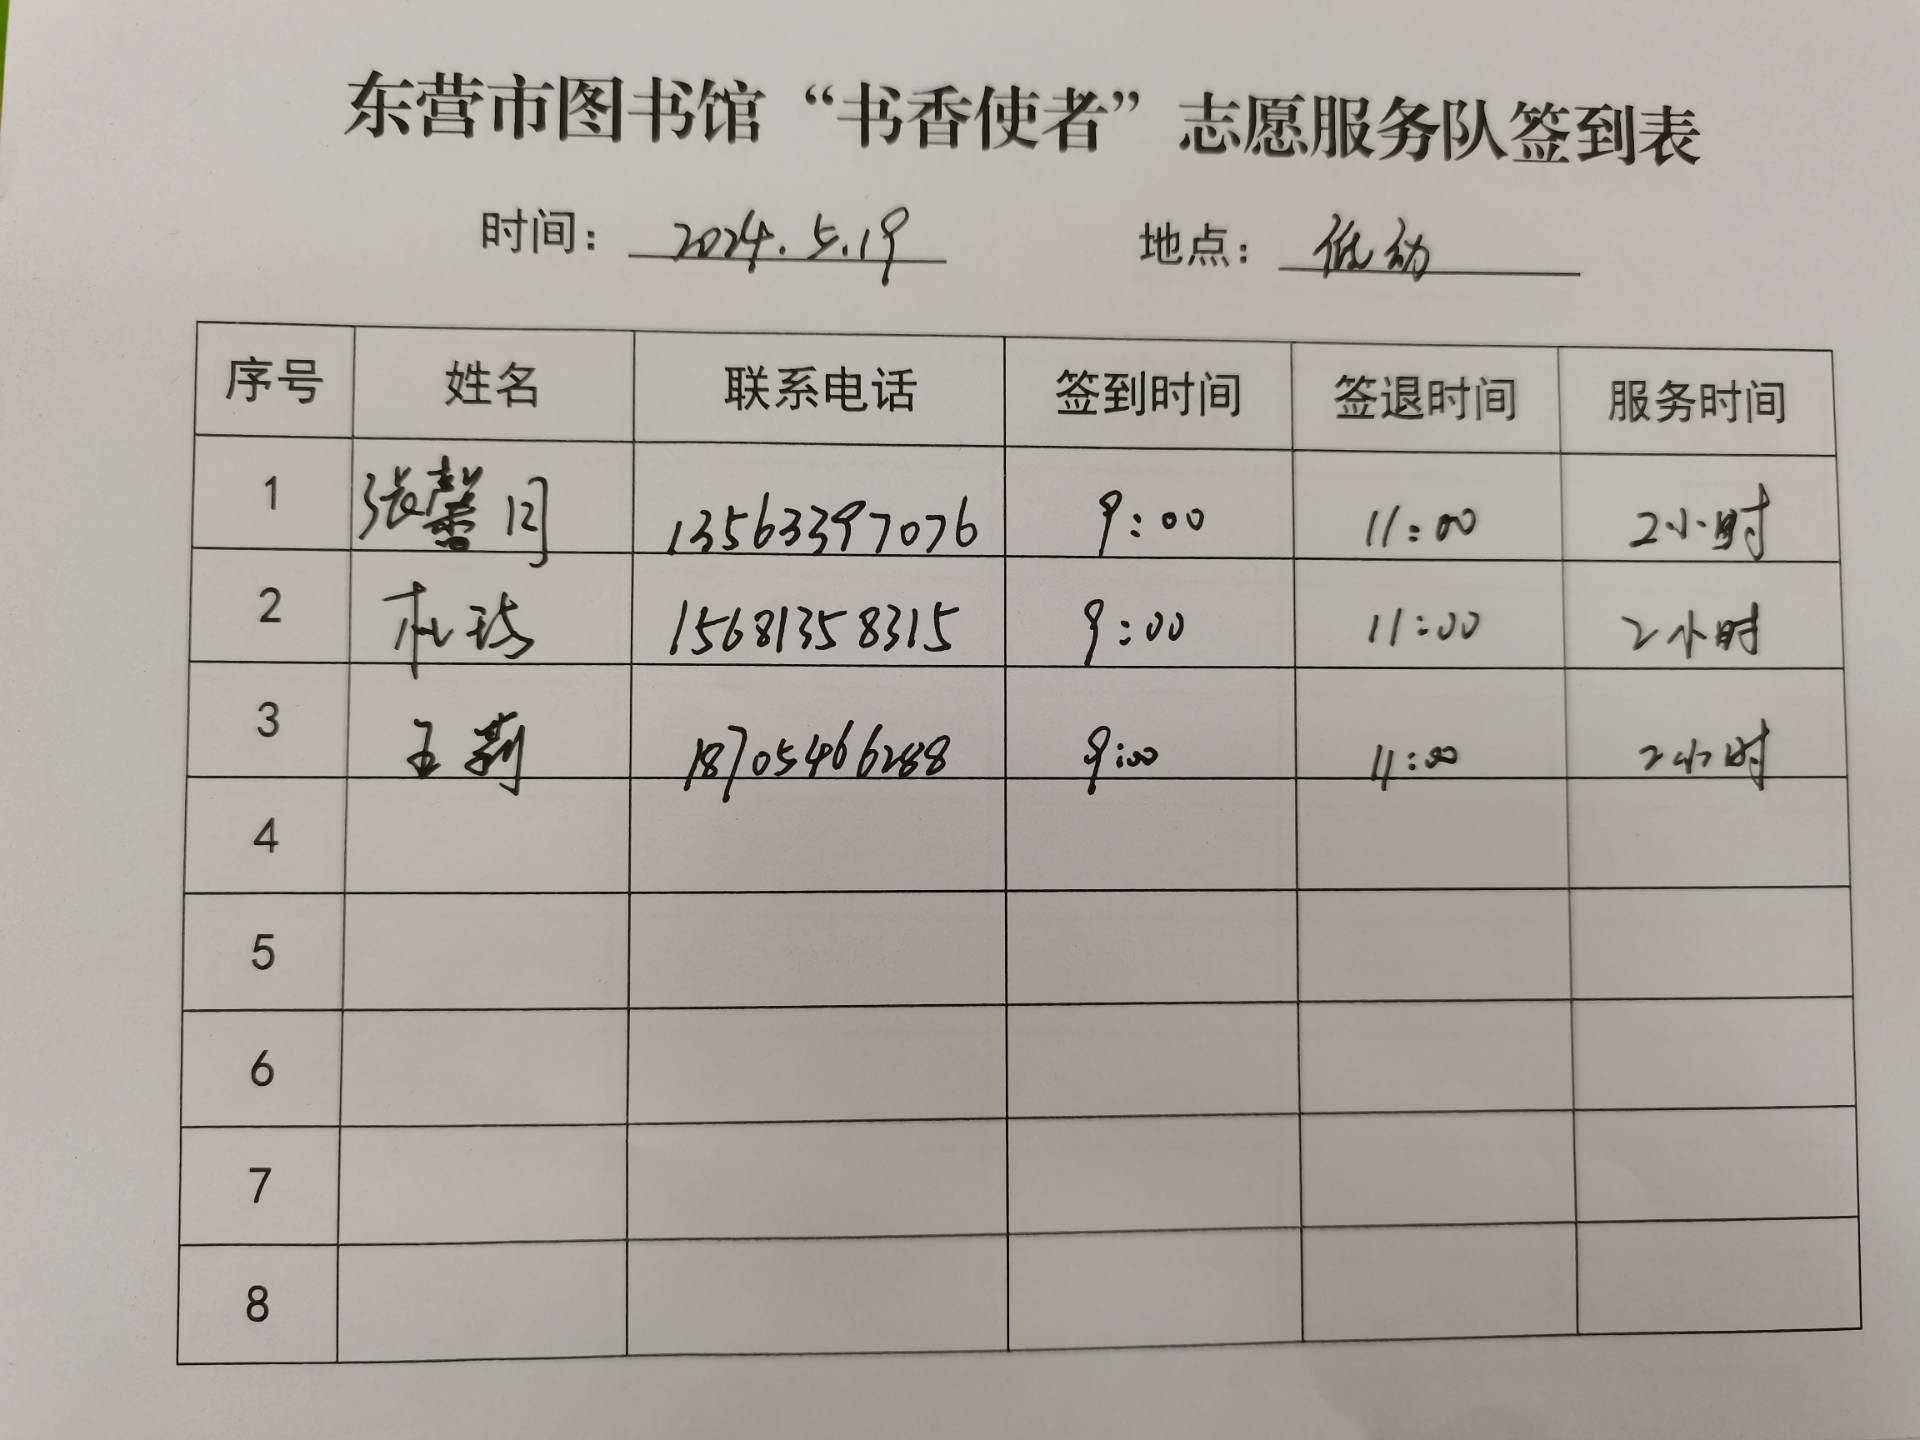 东营市图书馆“书香使者”志愿服务队签到表
时间： 2024.5.19 地点： 低幼
序号 姓名 联系电话 签到时间 签退时间 服务时间
1 张馨 13563397076 9:00 11:00 2小时
2 杜 15681358315 9:00 11:00 2小时
3 王莉 18705466288 9:00 11:00 2小时
4
5
6
7
8